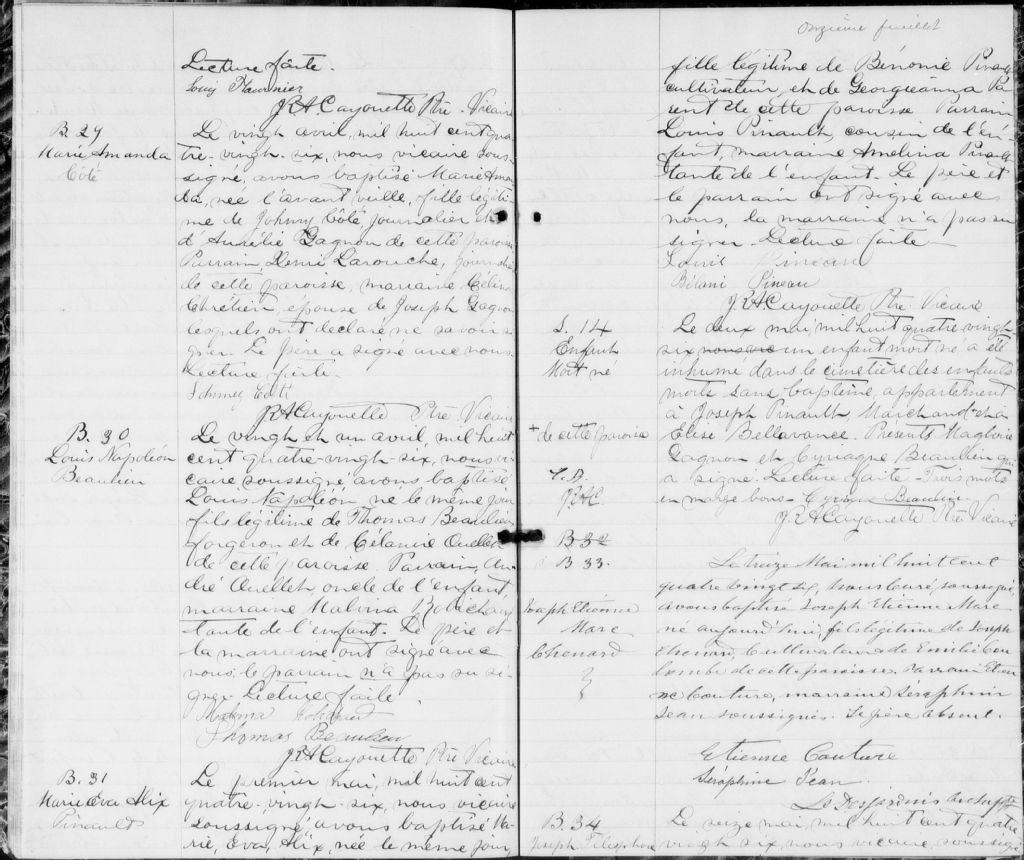 Lecture faite.
Louis Fournier
J.R.A. Cayouette Ptre Vicaire
B. 29
Marie Amanda
Côté
Le vingt avril, mil huit cent qua-
tre-vingt-six, nous vicaire sous-
signé, avons baptisé Marie Aman-
da, née l'avant veille, fille légiti-
me de Johnny Côté, journalier et
d'Aurélie Gagnon de cette paroisse
Parrain, Henri Larouche, journalier
de cette paroisse, marraine Célina
Chrétien, épouse de Joseph Gagnon
lesquels ont déclaré ne savoir si-
gner. Le père a signé avec nous.
Lecture faite.
Johnney Coté
J.R.A. Cayouette Ptre Vicaire
B. 30
Louis Napoléon
Beaulieu
Le vingt et un avril, mil huit
cent quatre-vingt-six, nous vi-
caire soussigné, avons baptisé
Louis Napoléon, né le même jour
fils légitime de Thomas Beaulieu
forgeron et de Célanire Ouellet
de cette paroisse. Parrain, An-
dré Ouellet, oncle de l'enfant,
marraine Malvina
tante de l'enfant. Le père et
la marraine ont signé avec
nous, le parrain n'a pas su si-
gner. Lecture faite.
Thomas Beaulieu
J.R.A. Cayouette Ptre Vicaire
B. 31
Marie Eva Alix
Pinault
Le premier mai, mil huit cent
quatre-vingt-six, nous vicaire
soussigné, avons baptisé Ma-
rie, Eva, Alix, née le même jour,
Onzième feuillet
fille légitime de Bénonie Pinault
cultivateur, et de Georgianna Pa-
rent de cette paroisse Parrain
Louis Pinault, cousin de l'en-
fant, marraine Amelina Pinault
tante de l'enfant. Le père et
le parrain ont signé avec
nous, la marraine n'a pas su
signer. Lecture faite
Louis Pineau
Béloni Pineau
J.R.A. Cayouette Ptre Vicaire
S. 14
Enfant
Mort né
Le deux mai, mil huit quatre vingt
six nous vic un enfant mort né a été
inhumé dans le cimetière des enfants
morts sans baptême, appartenant
à Joseph Pinault Marchand + et à
Elise Bellavance. Présents Magloire
Gagnon et Cyriaque Beaulieu qui
a signé. Lecture faite - Trois mots
en marge bons - Cyriaque Beaulieu
J.R.A. Cayouette Ptre Vicaire
+ de cette paroisse
J.R.A.C.
B 32
B 33.
Joseph Etienne
Marc
Chenard
Le treize Mai mil huit cent
quatre vingt six, nous curé soussigné,
avons baptisé Joseph Etienne Marc
né aujourd'hui, fils légitime de Joseph
Chenard, Cultivateur et de Emilie Cou-
lombe de cette paroisse. Parrain Etien-
ne Couture, marraine Séraphine
Jean soussignés. Le père absent.
Etienne Couture
Séraphine Jean
B. 34
Joseph Télesphore
Le seize mai, mil huit cent quatre
vingt six, nous vicaire, soussigné